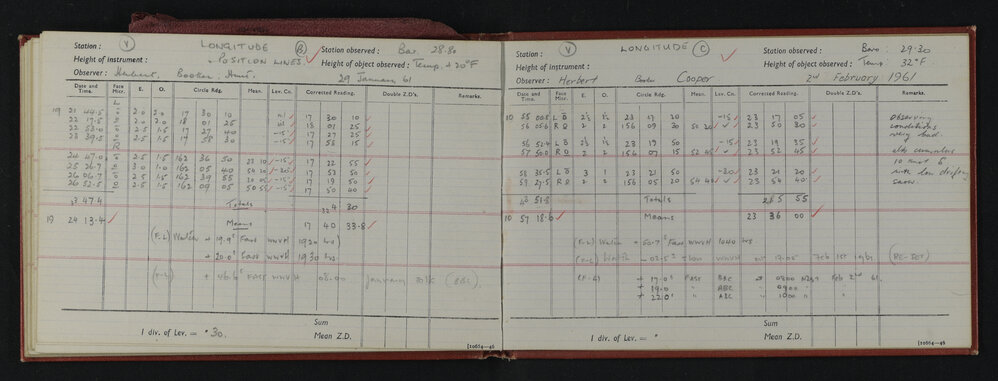 Station : V LONGITUDE B Station observed : Bar. 28.80
Height of instrument : - POSITION LINES Height of object observed : Temp. +20°F
Observer : Herbert, Booker, Hunt. 29 January, 61
Date and Time. Face Micr. E. O. Circle Rdg. Mean. Lev. Cn. Corrected Reading. Double Z.D's. Remarks.
L
19 21 44.5 2.0 2.0 17 30 10 nil 17 30 10
22 17.5 2.0 2.0 18 01 25 nil 18 01 25
22 53.0 2.5 1.5 17 27 40 -15 17 27 25
23 39.5 2.5 1.5 17 58 30 -15 17 58 15
R
24 47.0 2.5 1.5 162 36 50 23 10 -15 17 22 55
25 26.7 3.0 1.0 162 05 40 54 20 -30 17 53 50
26 06.7 2.5 1.5 162 39 55 20 05 -15 17 19 50
26 52.5 2.5 1.5 162 09 05 50 55 -15 17 50 40
47.4 Totals 4 30
19 24 13.4 Means 17 40 33.8
(F.L) Watch + 19.9s Fast WWVH 1920 hrs
+ 20.0s Fast WWVH 1930 hrs
+ 46.4s FAST WWVH 08.00 January 30th (BBC).
1 div. of Lev. = " 30. Sum
Mean Z.D.
[10664—46
Station : V LONGITUDE C Station observed : Baro 29.30
Height of instrument : Height of object observed : Temp. 32°F.
Observer : Herbert Booker Cooper 2nd February 1961
Date and Time. Face Micr. E. O. Circle Rdg. Mean. Lev. Cn. Corrected Reading. Double Z.D's. Remarks.
10 55 00.8 L 2½ 1½ 23 17 20 -15 23 17 05 observing
56 05.6 R 2 2 156 09 30 50 30 23 50 30 conditions
very bad.
56 52.4 L 2½ 1½ 23 19 50 -15 23 19 35
57 50.0 R 2 2 156 07 15 52 45 23 52 45 alto cumulus
10 knot S
58 35.5 L 3 1 23 21 50 -30 23 21 20 with low drifting
59 27.5 R 2 2 156 05 20 54 40 23 54 40 snow.
51.8 Totals 55
10 57 18.6 Means 23 36 00
(F.L) Watch + 50.7s Fast WWVH 1040 hrs
WWVH at 19.05 Feb 1st 1961 (RE-SET)
+ 17.0s FAST BBC at 0800 Feb 2nd 61.
+ 19.0 " BBC " 0900 " "
+ 22.0s " BBC " 1000 " "
1 div. of Lev. = " Sum
Mean Z.D.
[10664—46